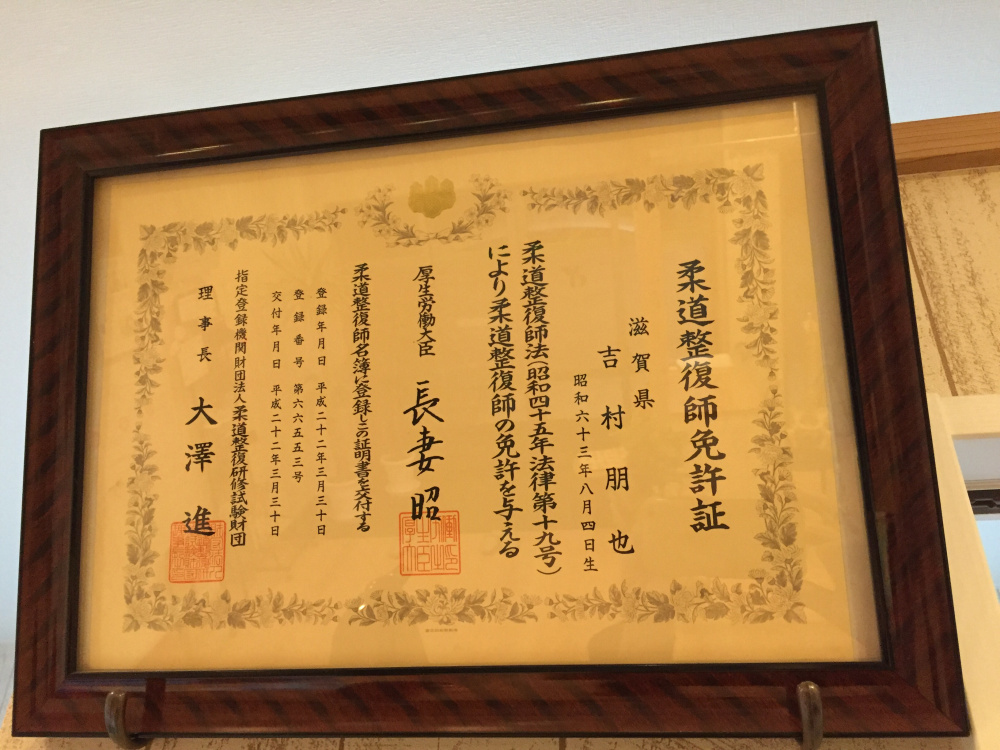 柔道整復師免許証
滋賀県
吉村朋也
昭和六十三年八月四日生
柔道整復師法(昭和四十五年法律第十九号)
により柔道整復師の免許を与える
厚生労働大臣 長妻昭
柔道整復師名簿に登録しこの証明書を交付する
登録年月日 平成二十二年三月三十日
登録番号 第六六五五三号
交付年月日 平成二十二年三月三十日
指定登録機関財団法人柔道整復研修試験財団
理事長 大澤進